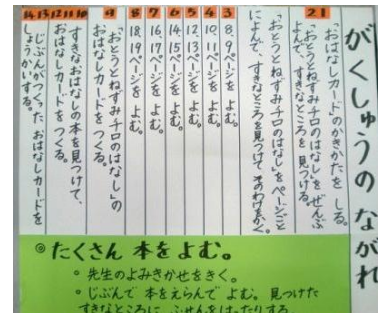 がくしゅうの ながれ
1
2
「おはなしカード」のかきかたを しる。
「おとうとねずみチロのはなし」を ぜんぶ
よんで、すきなところを 見つける。
「おとうとねずみチロのはなし」を ページごと
によんで、すきなところを見つけて そのわけをかく。
3
8、9ページを よむ。
4
10、11ページを よむ。
5
12、13ページを よむ。
6
14、15ページを よむ。
7
16、17ページを よむ。
8
18、19ページを よむ。
9
「おとうとねずみチロのはなし」の
おはなしカードを つくる。
10
11
12
すきなおはなしの本を見つけて、
おはなしカードを つくる。
13
14
じぶんがつくった おはなしカードを
しょうかいする。
◎たくさん 本をよむ。
○先生のよみきかせをきく。
○じぶんで 本をえらんで よむ。見つけた
すきなところに ふせんをはったりする